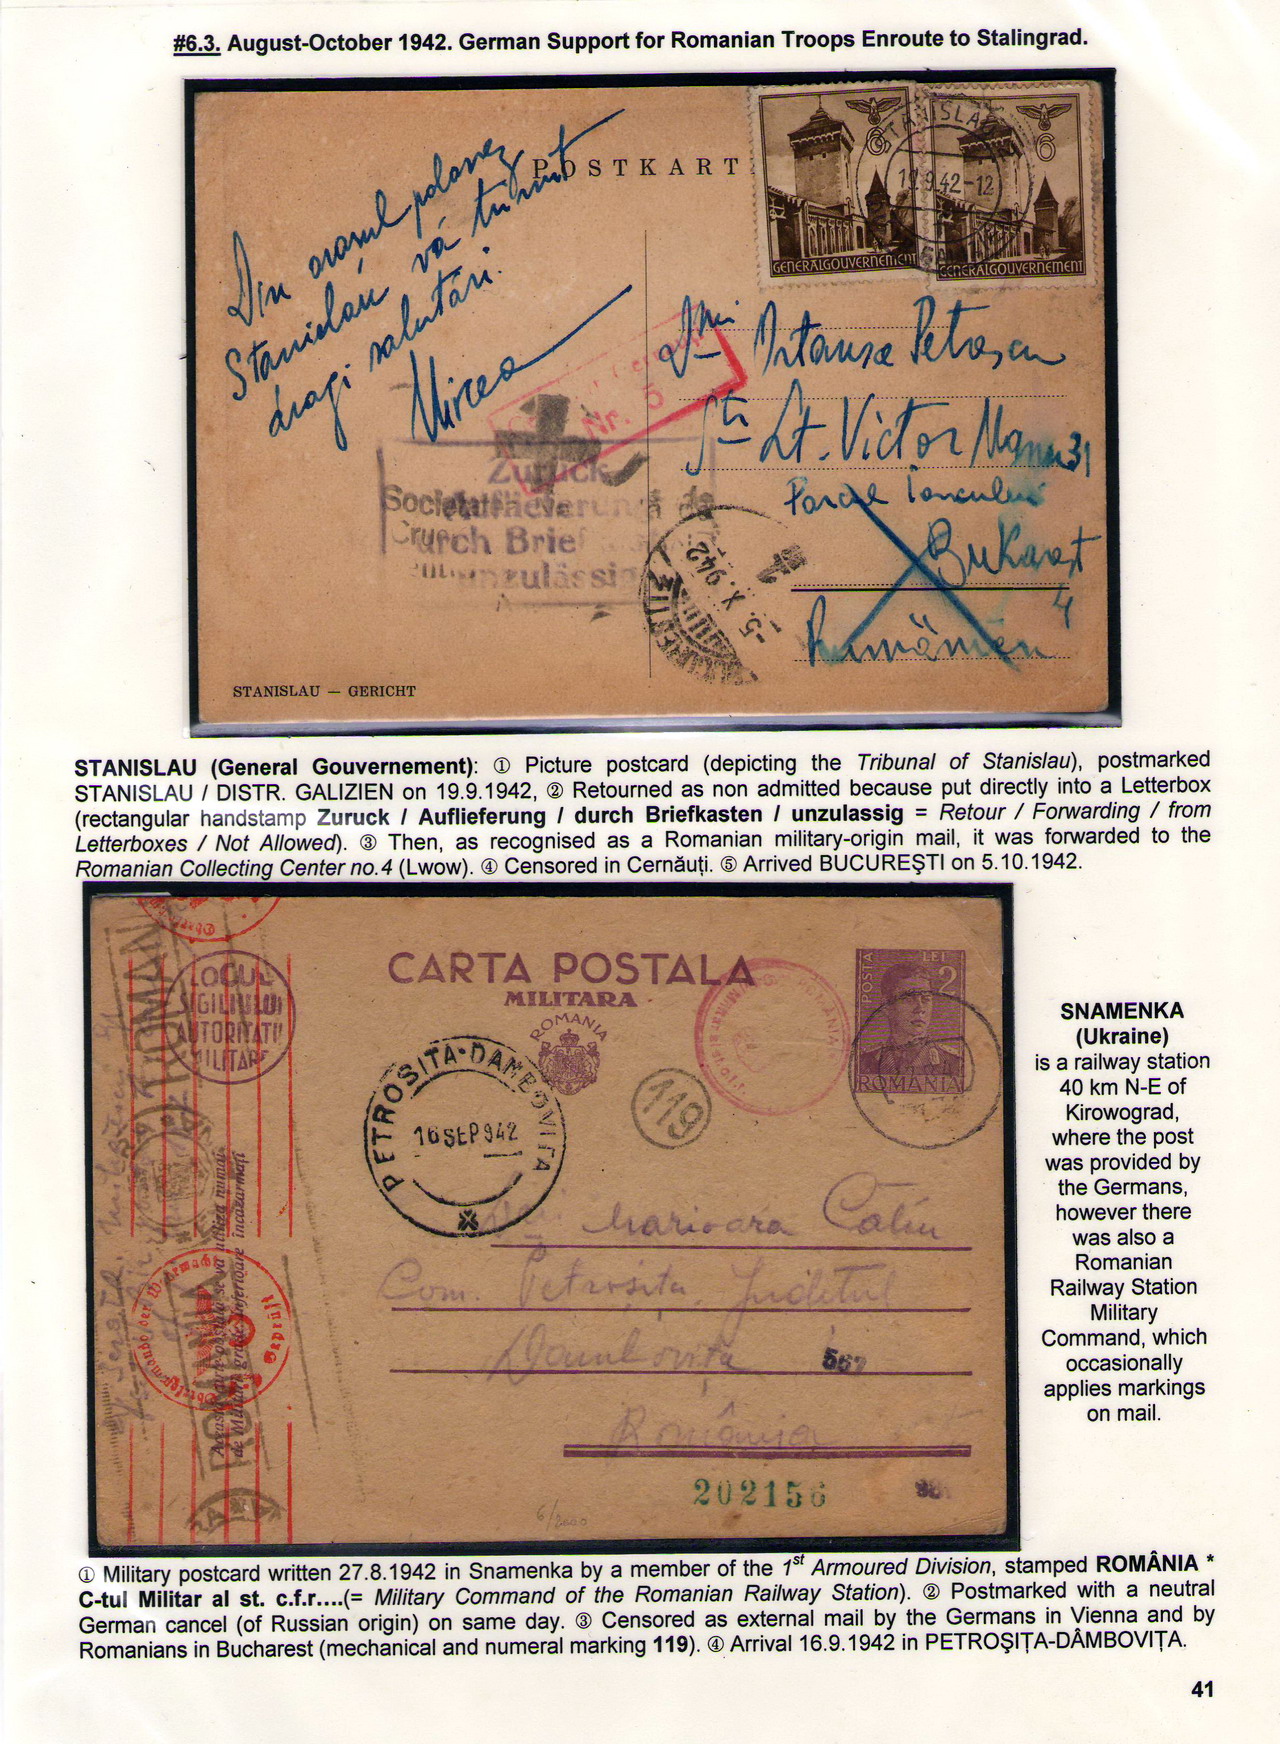 #6.3. August-October 1942. German Support for Romanian Troops Enroute to Stalingrad.
POSTKART
6
6
STANISLAU
19.9.42-12
GENERALGOUVERNEMENT
GENERALGOUVERNEMENT
Din orașul polonez
Stanislau vă trimit
dragi salutări.
Mircea
Nr. 5
Zurück
Auflieferung
durch Brief
unzulässig
Societatea
-5. X. 942
Str Lt. Victor Manu 31
Parcul Iancului
Bukarest
4
Rumänien
STANISLAU — GERICHT
STANISLAU (General Gouvernement): ① Picture postcard (depicting the Tribunal of Stanislau), postmarked
STANISLAU / DISTR. GALIZIEN on 19.9.1942, ② Retourned as non admitted because put directly into a Letterbox
(rectangular handstamp Zuruck / Auflieferung / durch Briefkasten / unzulassig = Retour / Forwarding / from
Letterboxes / Not Allowed). ③ Then, as recognised as a Romanian military-origin mail, it was forwarded to the
Romanian Collecting Center no.4 (Lwow). ④ Censored in Cernăuți. ⑤ Arrived BUCUREŞTI on 5.10.1942.
CARTA POSTALA
MILITARA
ROMANIA
POSTA LEI 2
ROMANIA
LOCUL
SIGILIULUI
AUTORITATII
MILITARE
PETROSITA-DAMBOVITA
16 SEP 942
119
Marioara Catiu
Com. Petrosița Județul
Dambovița
567
România
202156
Această carte postala se va utiliza numai
de Militari grade inferioare incazarmați
ROMANIA
6/2000
SNAMENKA
(Ukraine)
is a railway station
40 km N-E of
Kirowograd,
where the post
was provided by
the Germans,
however there
was also a
Romanian
Railway Station
Military
Command, which
occasionally
applies markings
on mail.
① Military postcard written 27.8.1942 in Snamenka by a member of the 1st Armoured Division, stamped ROMÂNIA *
C-tul Militar al st. c.f.r....(= Military Command of the Romanian Railway Station). ② Postmarked with a neutral
German cancel (of Russian origin) on same day. ③ Censored as external mail by the Germans in Vienna and by
Romanians in Bucharest (mechanical and numeral marking 119). ④ Arrival 16.9.1942 in PETROŞIȚA-DÂMBOVIȚA.
41